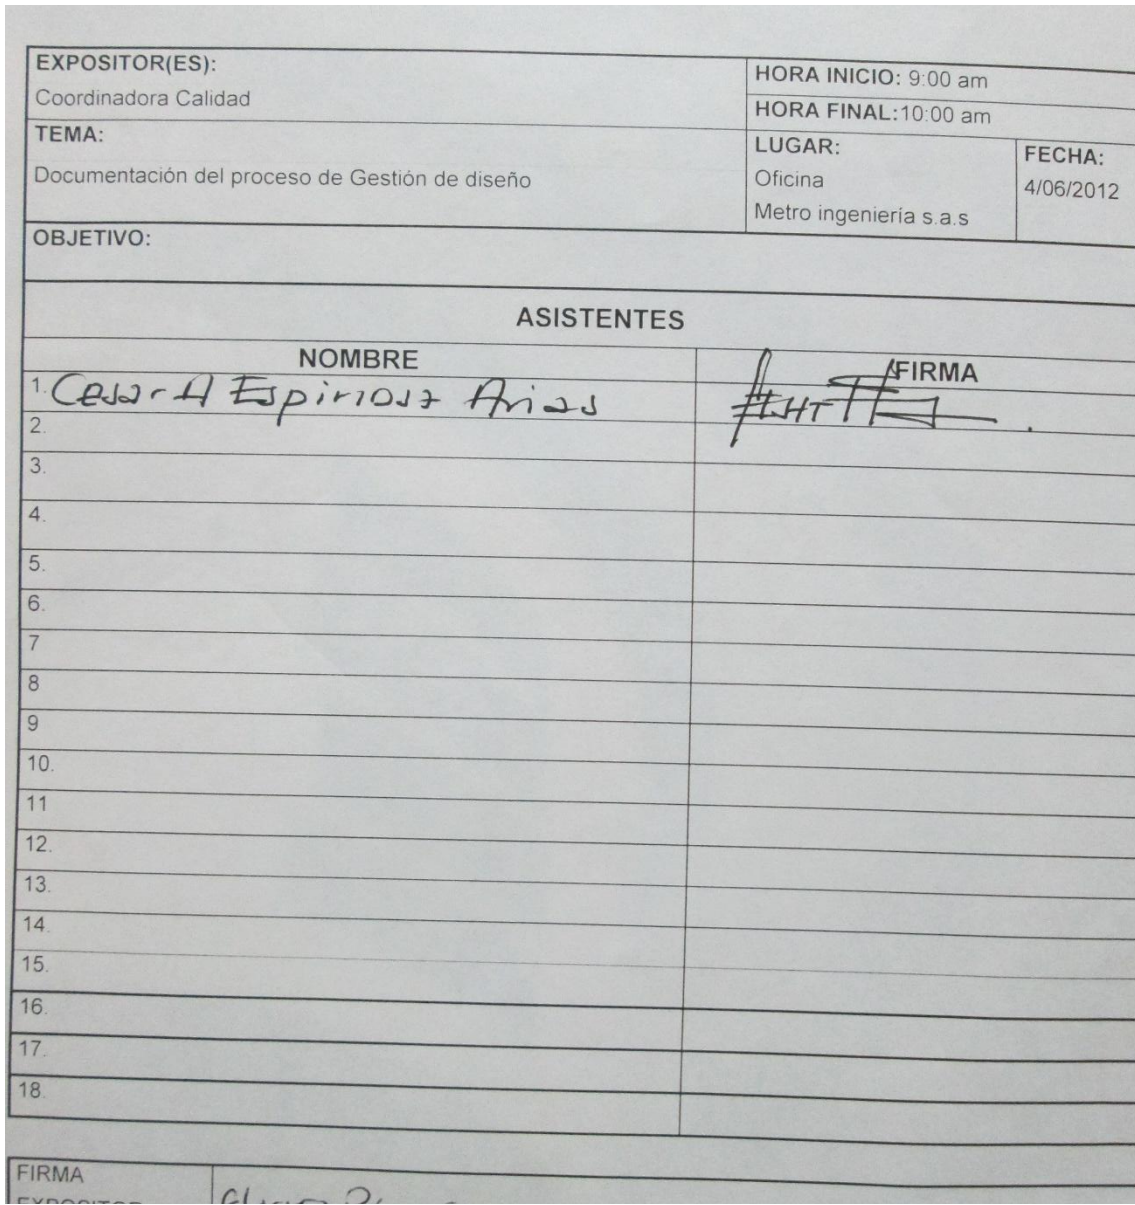 EXPOSITOR(ES):
Coordinadora Calidad
HORA INICIO: 9:00 am
HORA FINAL:10:00 am
TEMA:
Documentación del proceso de Gestión de diseño
LUGAR:
Oficina
Metro ingeniería s.a.s
FECHA:
4/06/2012
OBJETIVO:
ASISTENTES
NOMBRE
FIRMA
1. Cesar A Espinosa Arias
2.
3.
4.
5.
6.
7
8
9
10.
11
12.
13.
14.
15.
16.
17.
18.
FIRMA
EXPOSITOR